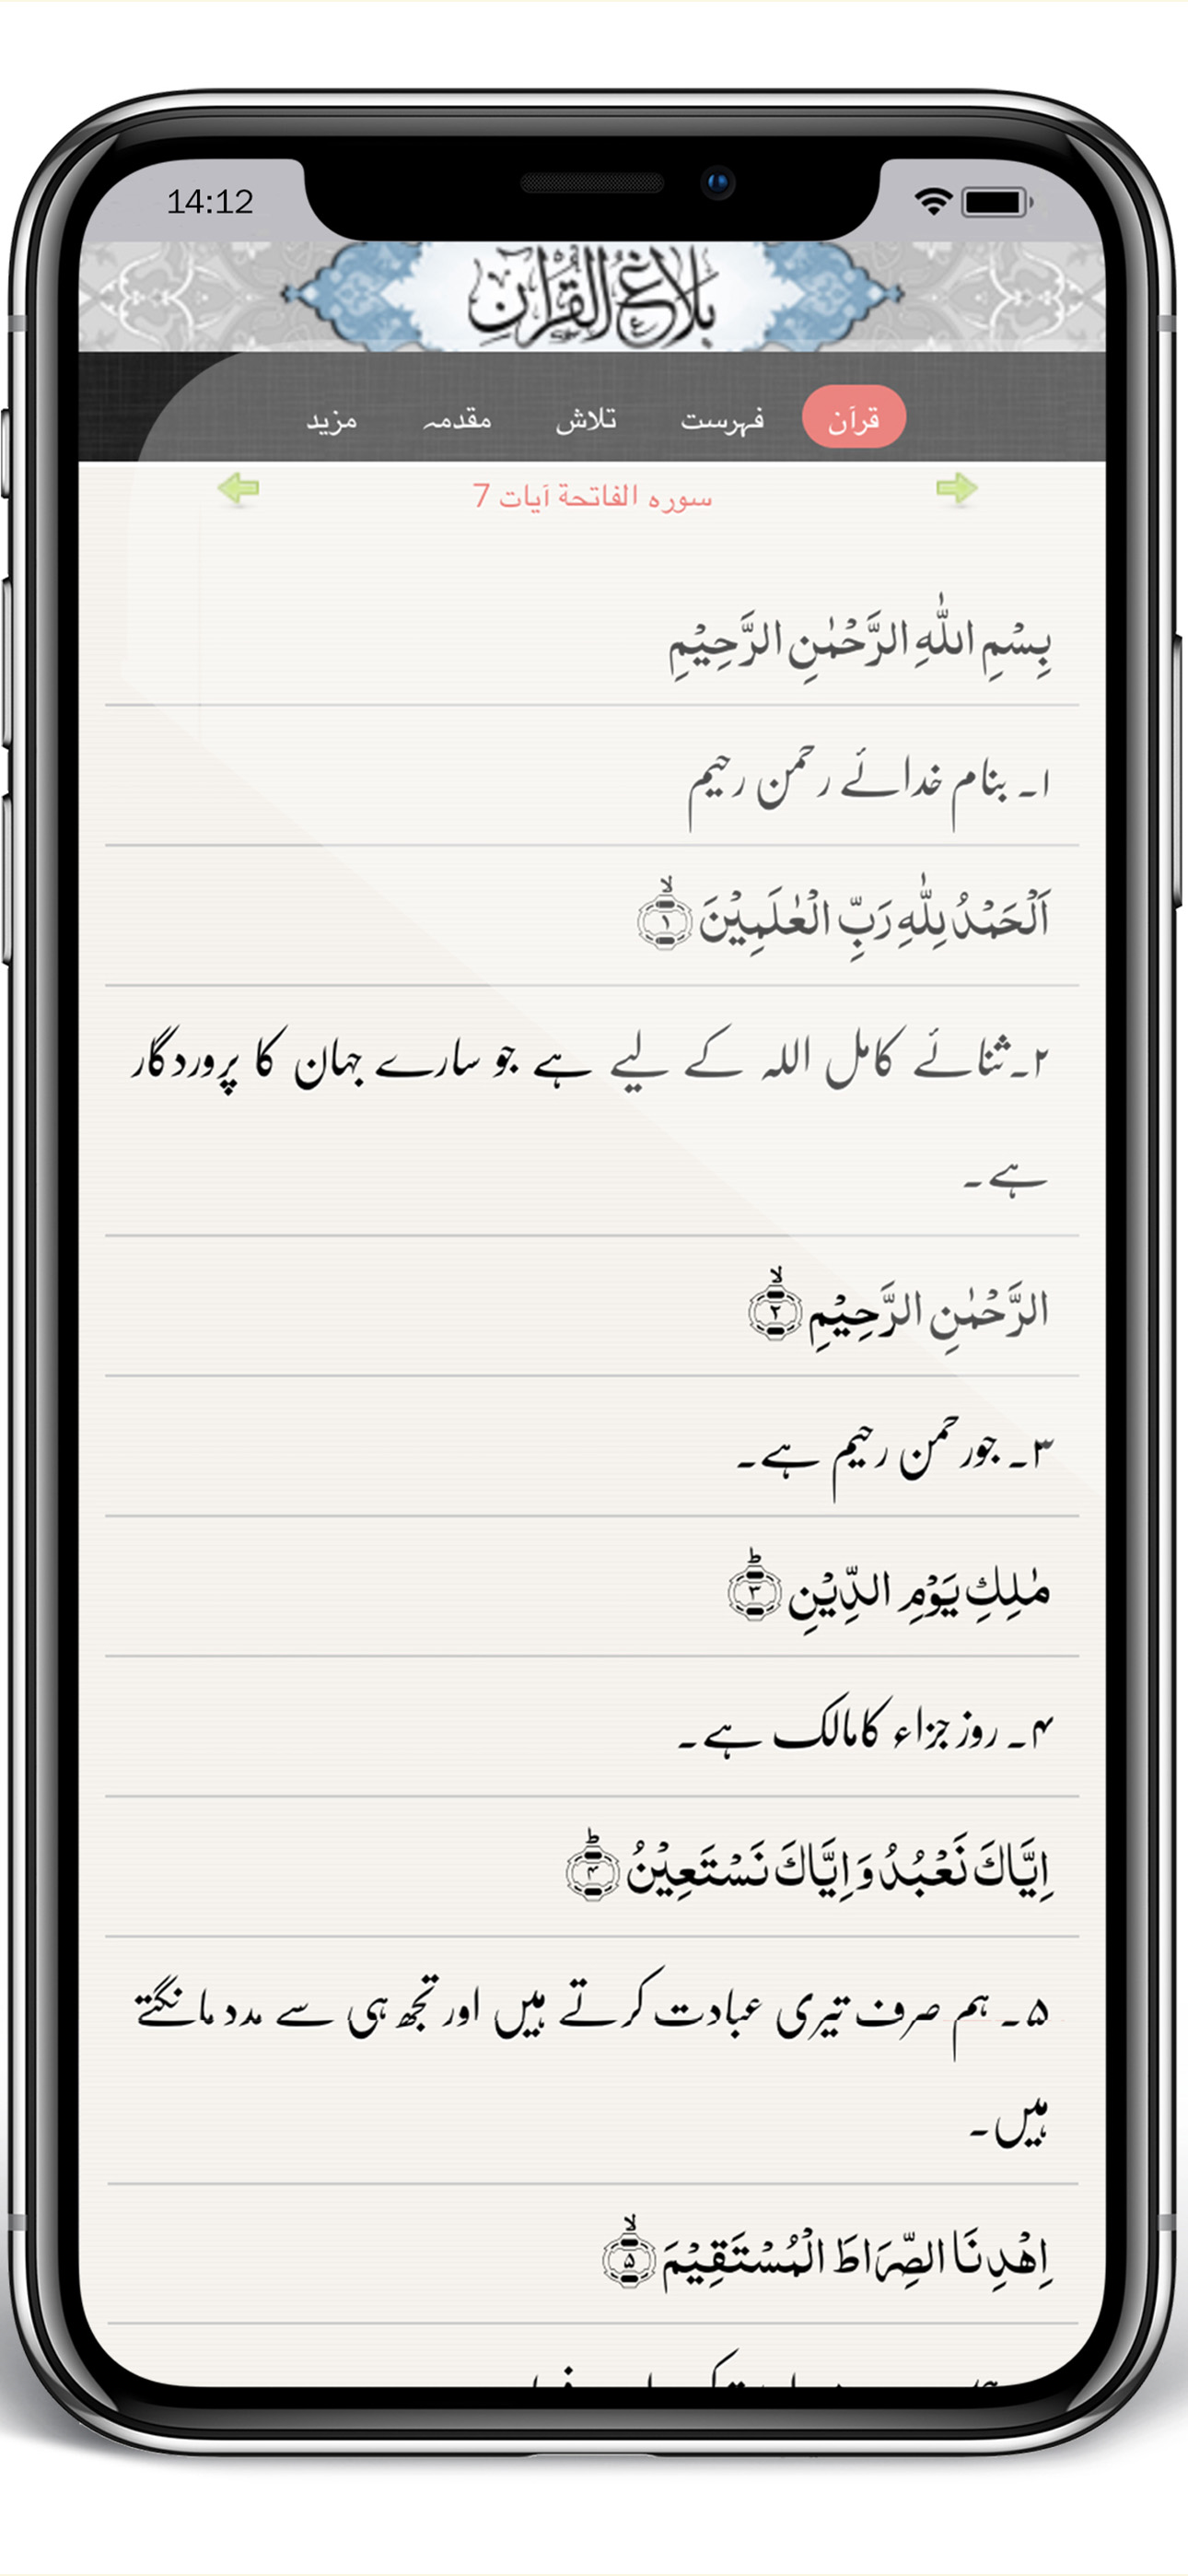 14:12
بلاغ القرآن
قرآن فہرست تلاش مقدمہ مزید
سورہ الفاتحة آیات 7
بِسْمِ اللّٰهِ الرَّحْمٰنِ الرَّحِیْمِ
۱۔ بنام خدائے رحمن رحیم
اَلْحَمْدُ لِلّٰهِ رَبِّ الْعٰلَمِیْنَ ۙ﴿۱﴾
۲۔ثنائے کامل اللہ کے لیے ہے جو سارے جہان کا پروردگار
ہے۔
الرَّحْمٰنِ الرَّحِیْمِ ۙ﴿۲﴾
۳۔ جورحمن رحیم ہے۔
مٰلِكِ یَوْمِ الدِّیْنِ ؕ﴿۳﴾
۴۔ روز جزاء کامالک ہے۔
اِیَّاكَ نَعْبُدُ وَ اِیَّاكَ نَسْتَعِیْنُ ؕ﴿۴﴾
۵۔ ہم صرف تیری عبادت کرتے ہیں اور تجھ ہی سے مدد مانگتے
ہیں۔
اِهْدِنَا الصِّرَاطَ الْمُسْتَقِیْمَ ۙ﴿۵﴾